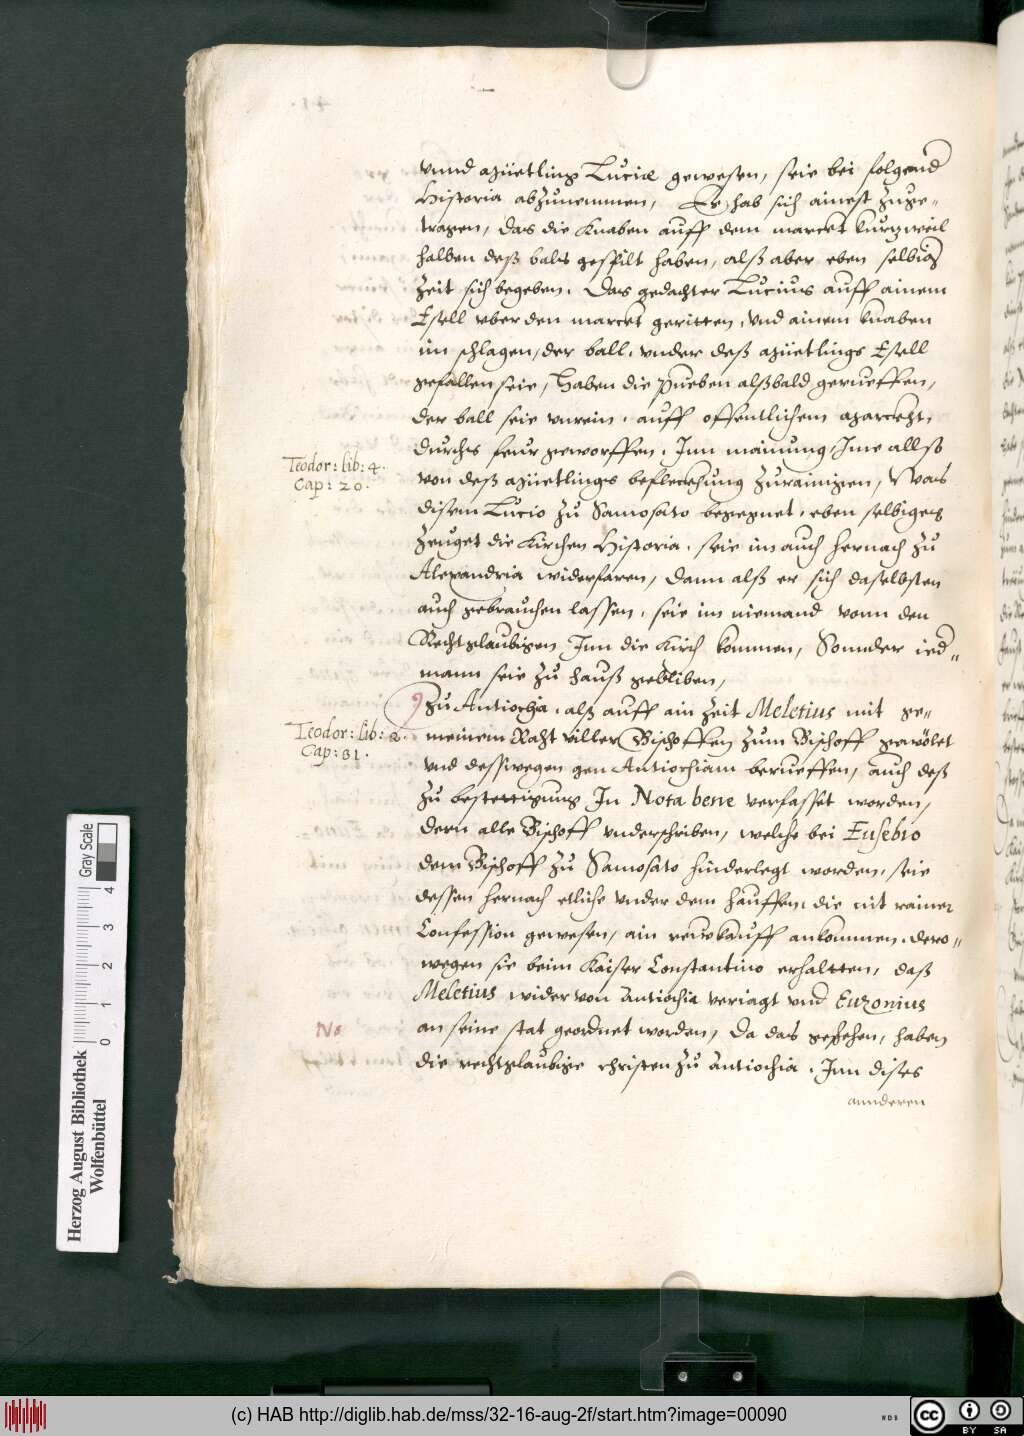 vnnd Mietling Luciæ gewesen, seie bei folgend
Historia abzunemmen, Es hab sich ainest zuge-
tragen, das die Knaben auff dem marckt kurzweil
halben deß bals gespilt haben, alß aber eben selbig
Zeit sich begeben. Das gedachter Lucius auff ainem
Esell vber den marckt geritten, vnd ainem knaben
im schlagen, der ball, vnder deß Mietlings Esell
gefallen seie, Haben die pueben alßbald gerueffen,
der ball seie vnrein, auff offentlichem Marckht,
durchs feur geworffen. Inn mainung Ime allso
Teodor: lib: 4.
Cap: 20.
von deß Mietlings befleckhung zurainigen, Was
disem Lucio zu Samosato begegnet, eben selbiges
zeuget die Kirchen Historia, seie im auch hernach zu
Alexandria widerfaren, Dann alß er sich daselbsten
auch gebrauchen lassen, seie im niemand vonn den
Rechtglaubigen Inn die Kirch kommen, Sonnder ied-
mann seie zu Hauß gebliben,
Zu Antiochia, alß auff ain Zeit Meletius mit ge-
Teodor: lib: 2.
Cap: 31.
meinem Raht viller Bischoffen zum Bischoff gewölet
vnd desswegen gen Antiochiam berueffen, auch deß
zu bestettigung In Nota bene verfasset worden,
dern alle Bischoff vnderschriben, welche bei Eusebio
dem Bischoff zu Samosato hinderlegt worden, seie
dessen hernach etliche vnder dem hauffen, die nit rainer
Confession gewesen, ain rewkauff ankommen, dero-
wegen sie beim Kaiser Constantino erhaltten, daß
Meletius wider von Antiochia veriagt vnd Euzonius
No
an seine stat geordnet worden, Da das geschehen, haben
die rechtglaubige christen zu Antiochia, Inn dises
annderen
Herzog August Bibliothek
Wolfenbüttel
0 1 2 3 4
Gray Scale
(c) HAB http://diglib.hab.de/mss/32-16-aug-2f/start.htm?image=00090
WDB
cc BY SA